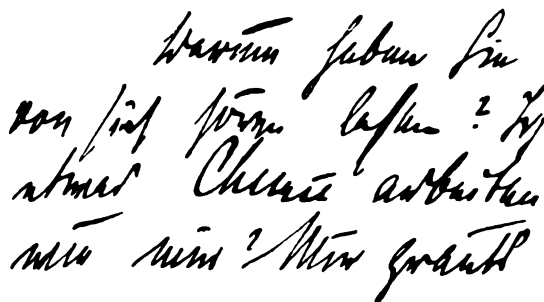 Warum haben Sie
von sich hören lassen? Ich
etwas Chemie arbeiten
nur? Mir graut's